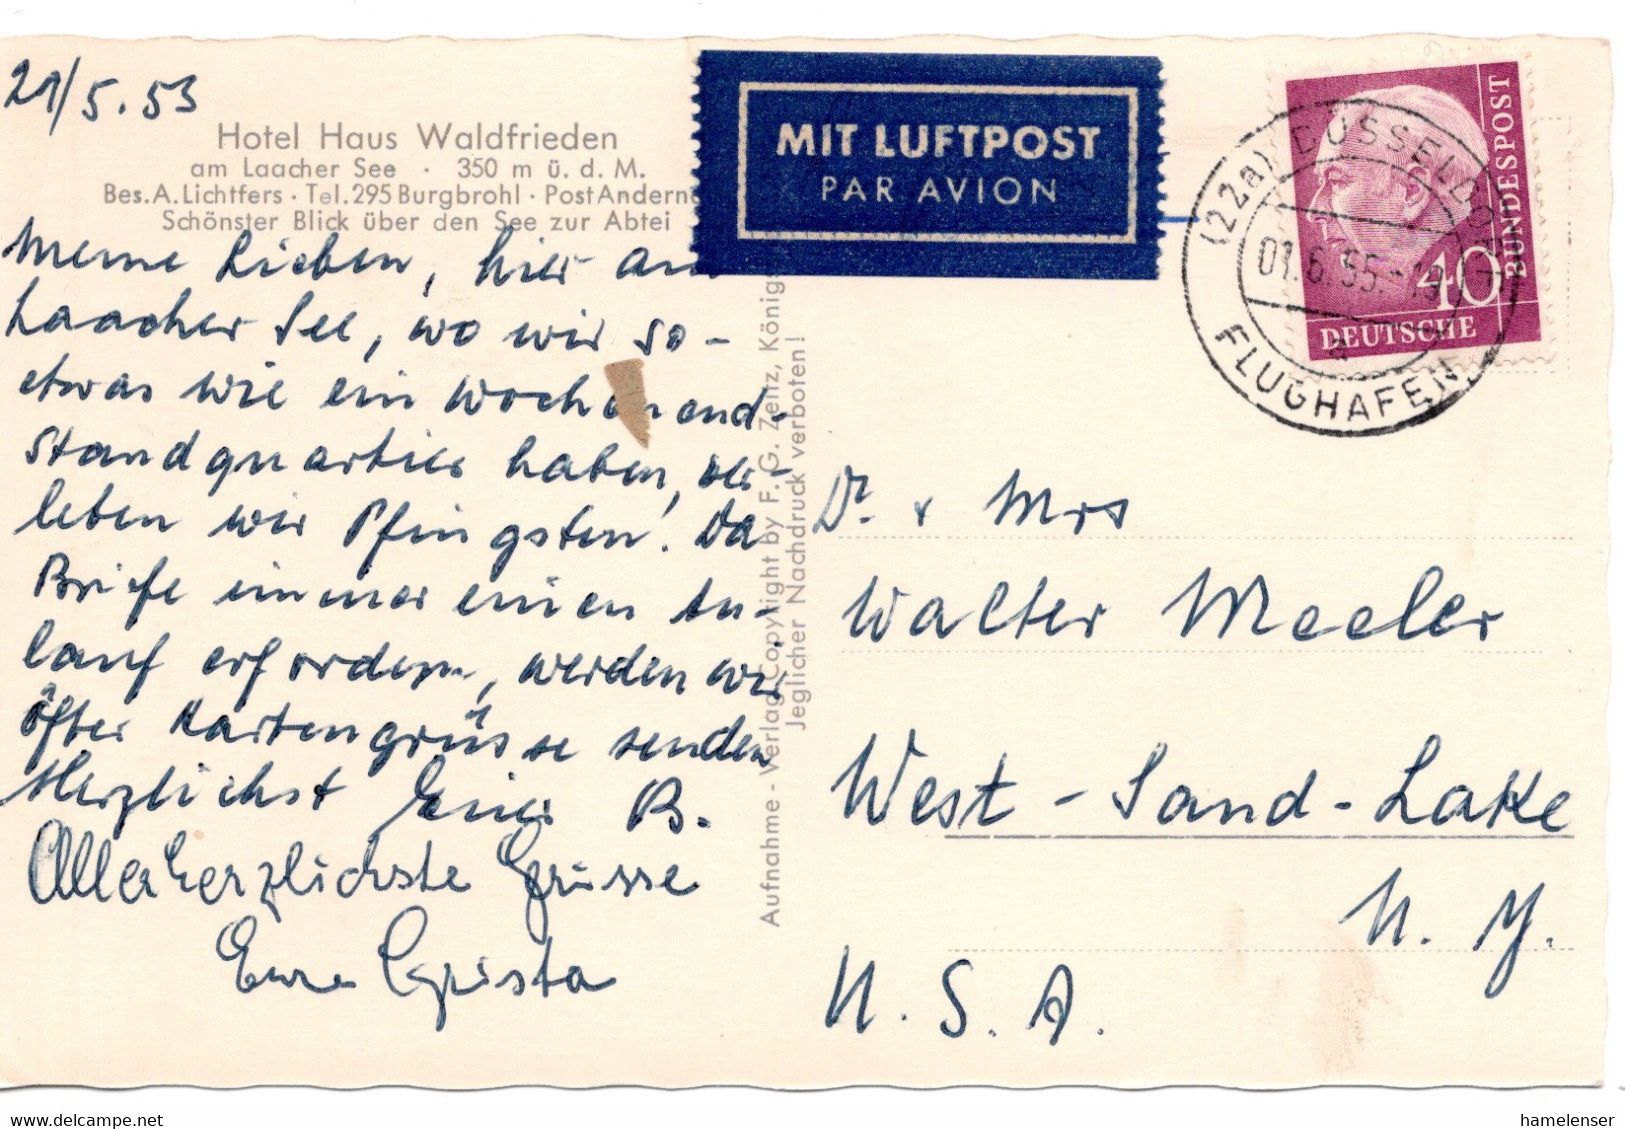 21/5.53
Hotel Haus Waldfrieden
am Laacher See · 350 m ü. d. M.
Bes. A. Lichtfers · Tel. 295 Burgbrohl · Post Andern
Schönster Blick über den See zur Abtei
Meine Lieben, hier am
Laacher See, wo wir so-
etwas wie ein Wochenend-
standquartier haben, ver-
leben wir Pfingsten! Da
Briefe immer einen An-
lauf erfordern, werden wir
öfter Kartengrüsse senden
Herzlichst Euer B.
Allerherzlichste Grüsse
Eure Christa
MIT LUFTPOST
PAR AVION
Aufnahme - Verlag Copyright by F. G. Zeitz, Königs
Jeglicher Nachdruck verboten!
(22a) DÜSSELDORF
01.6.55.-19
a
FLUGHAFEN
40
DEUTSCHE
BUNDESPOST
Dr. + Mrs
Walter Meeler
West-Sand-Lake
N. Y.
U. S. A.
www.delcampe.net
hamelenser